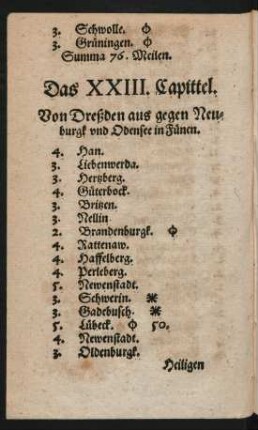 3. Schwolle. ⌽
3. Grüningen. ⌽
Summa 76. Meilen.
Das XXIII. Capittel.
Von Dreßden aus gegen Neu-
burgk vnd Odensee in Fünen.
4. Han.
3. Liebenwerda.
3. Hertzberg.
4. Güterbock.
3. Britzen.
3. Nellin
2. Brandenburgk. ⌽
4. Rattenaw.
4. Haffelberg.
4. Perleberg.
5. Newenstadt.
3. Schwerin. ⁕
3. Gadebusch. ⁕
5. Lübeck. ⌽ 50.
4. Newenstadt.
3. Oldenburgk.
Heiligen